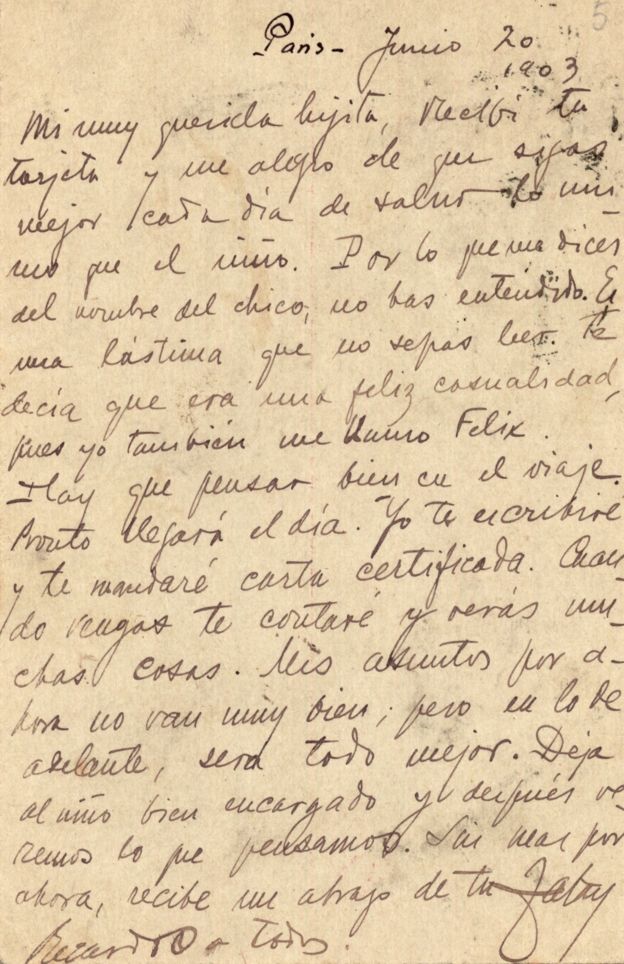 5
Paris - Junio 20
1903
Mi muy querida hijita, Recibí tu
tarjeta y me alegro de que sigas
mejor cada día de salud lo mis-
mo que el niño. Por lo que me dices
del nombre del chico, no has entendido. Es
una lástima que no sepas leer. te
decía que era una feliz casualidad,
pues yo también me llamo Felix.
Hay que pensar bien en el viaje.
Pronto llegará el día. Yo te escribiré
y te mandaré carta certificada. Cuan-
do vengas te contaré y verás mu-
chas cosas. Mis asuntos por a-
hora no van muy bien; pero en lo de
adelante, será todo mejor. Deja
al niño bien encargado y después ve-
remos lo que pensamos. Sin mas por
ahora, recibe un abrazo de tu
Recuerdo a todos.